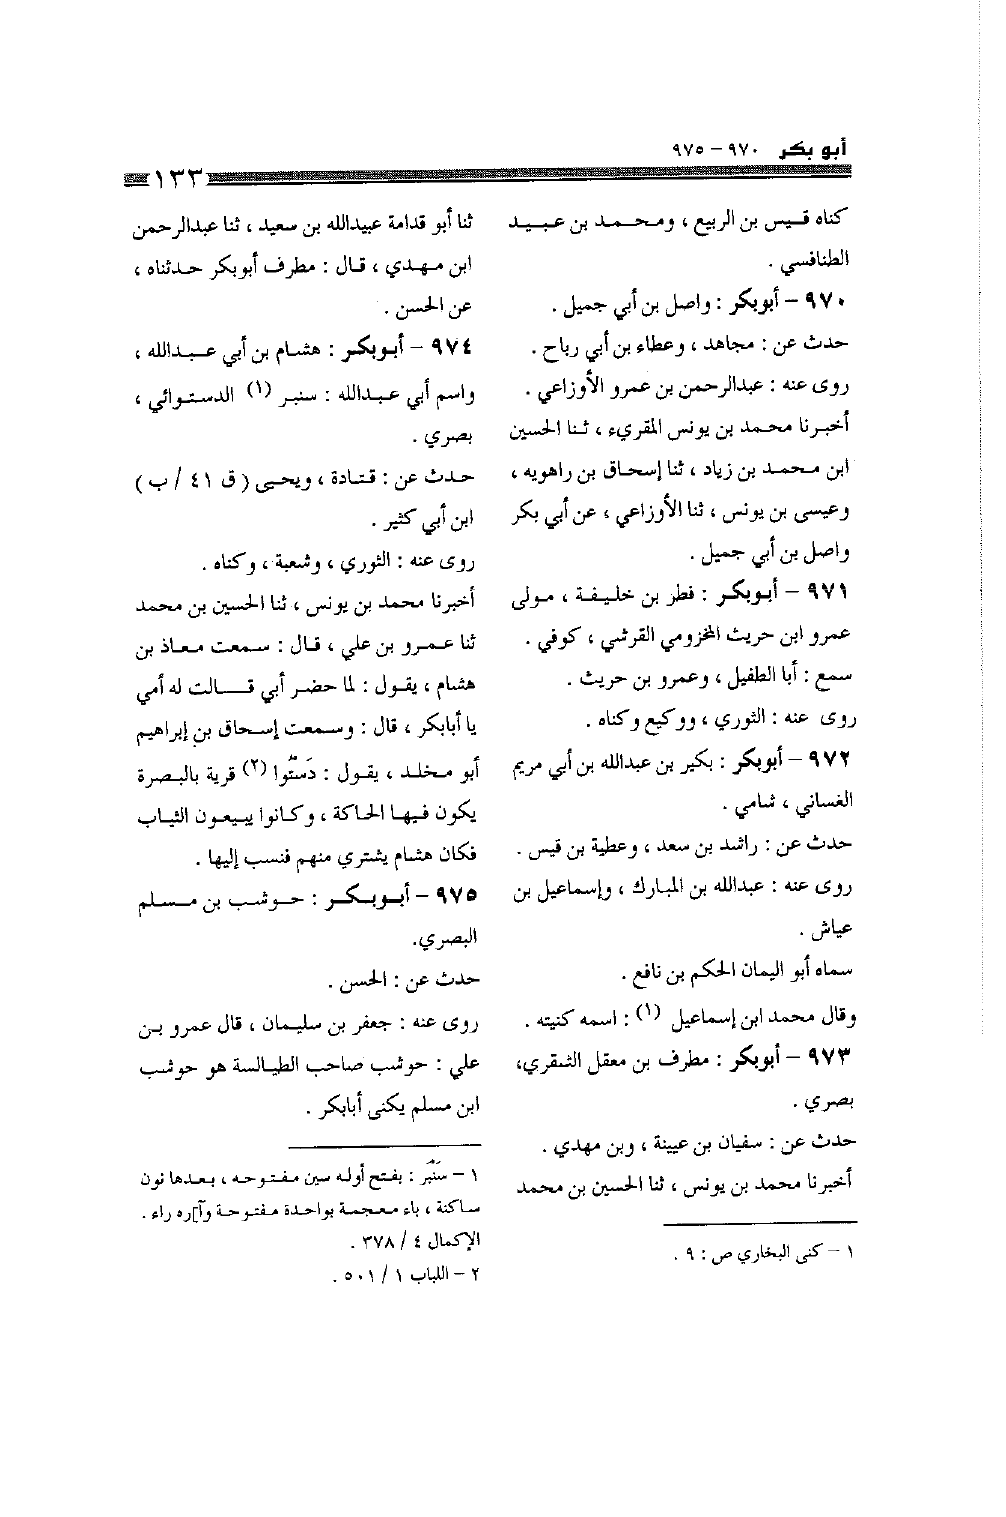 أبو بكر ٩٧٠ – ٩٧٥
١٣٣
كناه قيس بن الربيع ، ومحمد بن عبيد
الطنافسي .
٩٧٠ – أبوبكر : واصل بن أبي جميل .
حدث عن : مجاهد ، وعطاء بن أبي رباح .
روى عنه : عبدالرحمن بن عمرو الأوزاعي .
أخبرنا محمد بن يونس المقريء ، ثنا الحسين
ابن محمد بن زياد ، ثنا إسحاق بن راهويه ،
وعيسى بن يونس ، ثنا الأوزاعي ، عن أبي بكر
واصل بن أبي جميل .
٩٧١ – أبوبكر : فطر بن خليفة ، مولى
عمرو ابن حريث المخزومي القرشي ، كوفي .
سمع : أبا الطفيل ، وعمرو بن حريث .
روى عنه : الثوري ، ووكيع وكناه .
٩٧٢ – أبوبكر : بكير بن عبدالله بن أبي مريم
الغساني ، شامي .
حدث عن : راشد بن سعد ، وعطية بن قيس .
روى عنه : عبدالله بن المبارك ، وإسماعيل بن
عياش .
سماه أبو اليمان الحكم بن نافع .
وقال محمد ابن إسماعيل (١) : اسمه كنيته .
٩٧٣ – أبوبكر : مطرف بن معقل الشقري،
بصري .
حدث عن : سفيان بن عيينة ، وبن مهدي .
أخبرنا محمد بن يونس ، ثنا الحسين بن محمد
١ – كنى البخاري ص : ٩ .
ثنا أبو قدامة عبيدالله بن سعيد ، ثنا عبدالرحمن
ابن مهدي ، قال : مطرف أبوبكر حدثناه ،
عن الحسن .
٩٧٤ – أبوبكر : هشام بن أبي عبدالله ،
واسم أبي عبدالله : سنبر (١) الدستوائي ،
بصري .
حدث عن : قتادة ، ويحيى ( ق ٤١ / ب )
ابن أبي كثير .
روى عنه : الثوري ، وشعبة ، وكناه .
أخبرنا محمد بن يونس ، ثنا الحسين بن محمد
ثنا عمرو بن علي ، قال : سمعت معاذ بن
هشام ، يقول : لما حضر أبي قالت له أمي
يا أبابكر ، قال : وسمعت إسحاق بن إبراهيم
أبو مخلد ، يقول : دَستُوا (٢) قرية بالبصرة
يكون فيها الحاكة ، وكانوا يبيعون الثياب
فكان هشام يشتري منهم فنسب إليها .
٩٧٥ – أبوبكر : حوشب بن مسلم
البصري.
حدث عن : الحسن .
روى عنه : جعفر بن سليمان ، قال عمرو بن
علي : حوشب صاحب الطيالسة هو حوشب
ابن مسلم يكنى أبابكر .
١ – سَنْبَر : بفتح أوله سين مفتوحه ، بعدها نون
ساكنة ، باء معجمة بواحدة مفتوحة وآ]ره راء .
الإكمال ٤ / ٣٧٨ .
٢ – اللباب ١ / ٥٠١ .